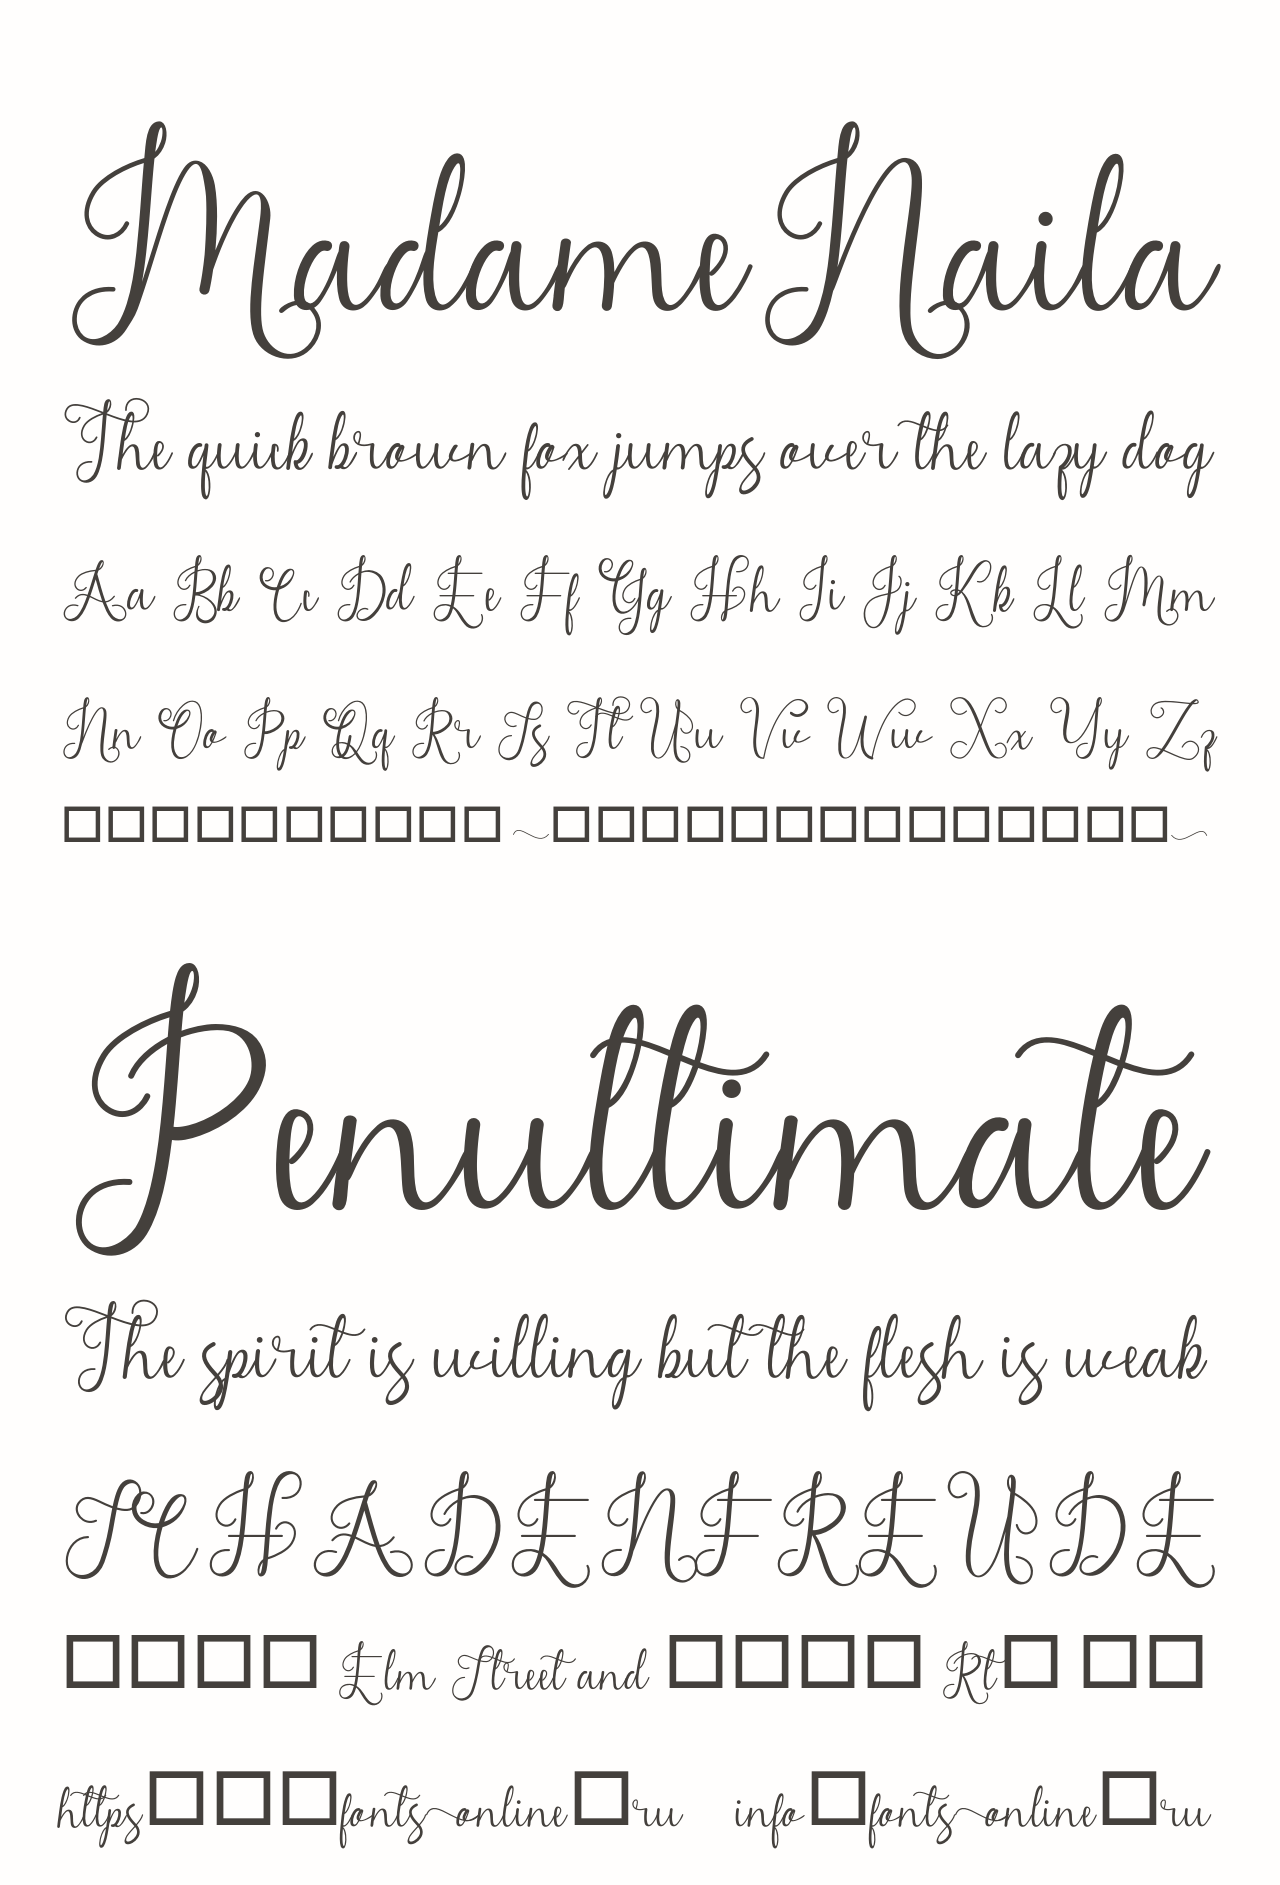 Madame Naila
The quick brown fox jumps over the lazy dog
Aa Bb Cc Dd Ee Ff Gg Hh Ii Jj Kk Ll Mm
Nn Oo Pp Qq Rr Ss Tt Uu Vv Ww Xx Yy Zz
□□□□□□□□□□ ~□□□□□□□□□□□□□□~
Penultimate
The spirit is willing but the flesh is weak
SCHADENFREUDE
□□□□ Elm Street and □□□□ Rt□ □□
https□□□fonts~online□ru info□fonts~online□ru